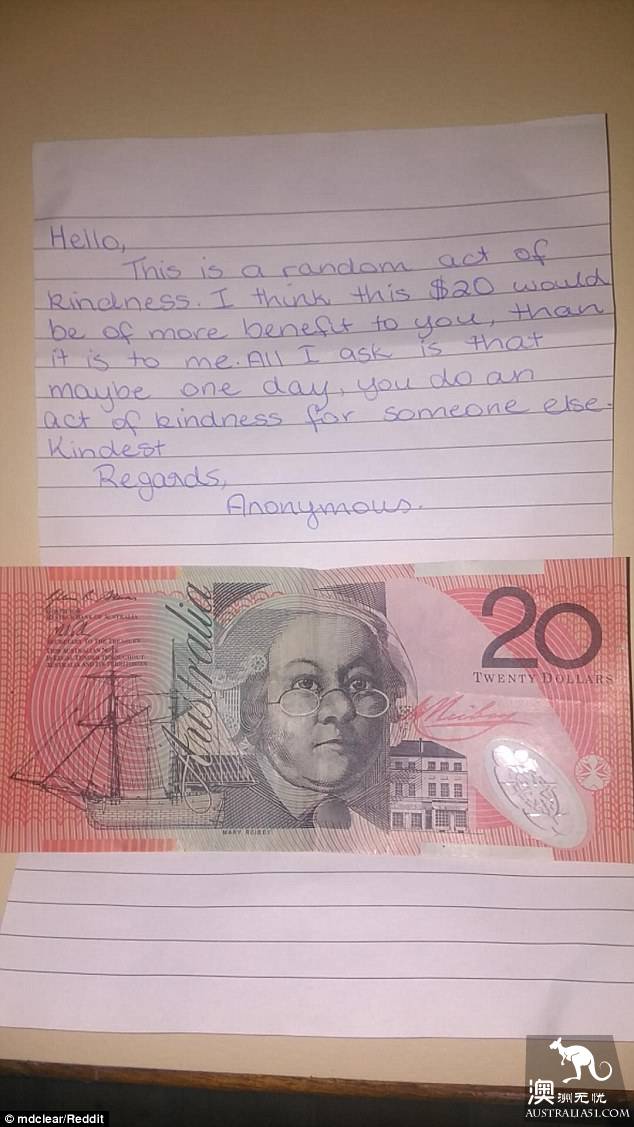 Hello,
This is a random act of
kindness. I think this $20 would
be of more benefit to you, than
it is to me. All I ask is that
maybe one day, you do an
act of kindness for someone else.
Kindest
Regards,
Anonymous.
Australia
20
TWENTY DOLLARS
MARY REIBEY
澳洲无忧
AUSTRALIA51.COM
© mdclear/Reddit